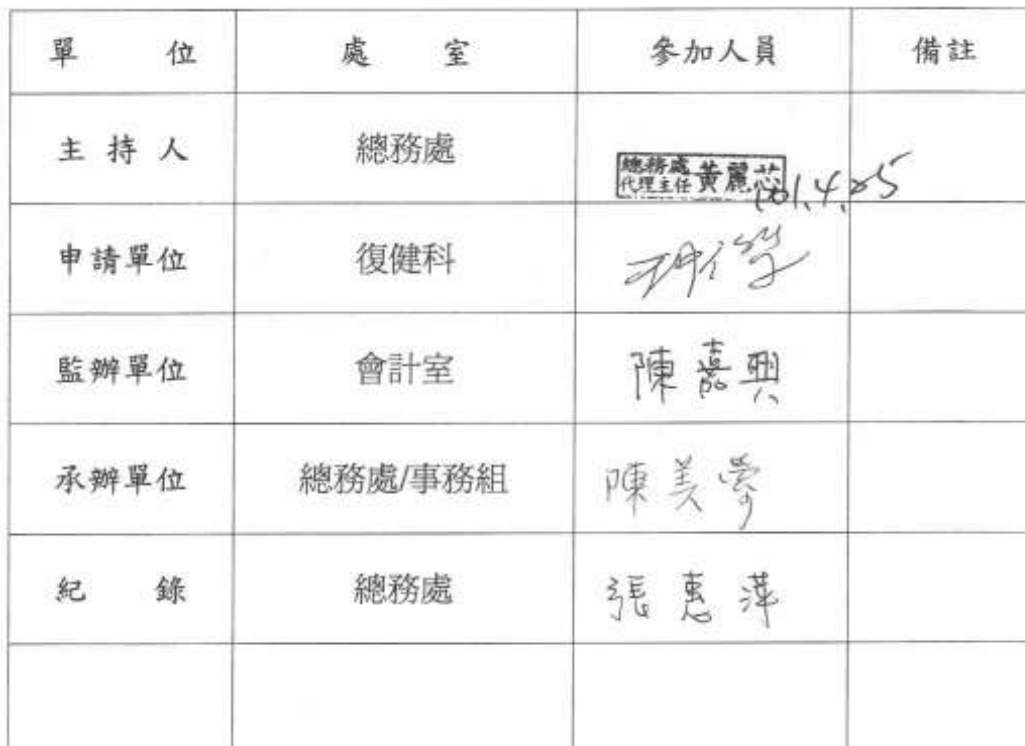 單 位 處 室 參加人員 備註
主 持 人 總務處 總務處 代理主任 黃麗芯 101.4.25
申請單位 復健科
監辦單位 會計室 陳嘉興
承辦單位 總務處/事務組 陳美
紀 錄 總務處 張惠萍